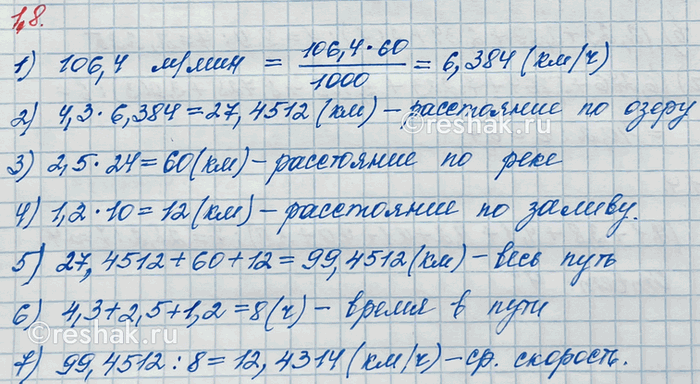 1,8.
1) 106,4 м/мин = 106,4·60/1000 = 6,384 (км/ч)
2) 4,3·6,384=27,4512 (км) – расстояние по озеру
3) 2,5·24=60(км) – расстояние по реке
4) 1,2·10=12 (км) – расстояние по заливу.
5) 27,4512+60+12=99,4512(км) – весь путь
6) 4,3+2,5+1,2=8(ч) – время в пути
7) 99,4512:8=12,4314(км/ч) – ср. скорость.
©reshak.ru
©reshak.ru
©reshak.ru